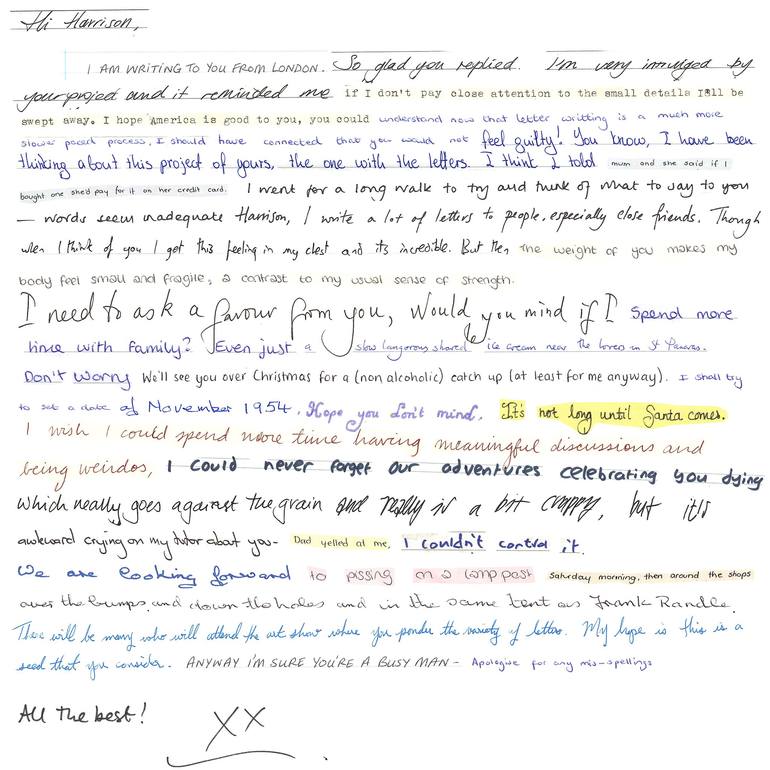 Hi Harrison,
I AM WRITING TO YOU FROM LONDON. So glad you replied. I'm very intrigued by
your project and it reminded me if I don't pay close attention to the small details I'll be
swept away. I hope America is good to you, you could understand now that letter writting is a much more
slower paced process, I should have connected that you would not feel guilty! You know, I have been
thinking about this project of yours, the one with the letters. I think I told mum and she said if I
bought one she'd pay for it on her credit card. I went for a long walk to try and think of what to say to you
— words seem inadequate Harrison, I write a lot of letters to people, especially close friends. Though
when I think of you I get this feeling in my chest and its incredible. But then the weight of you makes my
body feel small and fragile, a contrast to my usual sense of strength.
I need to ask a favour from you, Would you mind if I Spend more
time with family? Even just a slow langorous shared ice cream near the lovers in St Pancras.
Don't Worry We'll see you over Christmas for a (non alcoholic) catch up (at least for me anyway). I shall try
to set a date of November 1954. Hope you don't mind. It's not long until Santa comes.
I wish I could spend more time having meaningful discussions and
being weirdos, I could never forget our adventures celebrating you dying
which really goes against the grain and really is a bit crappy, but it's
awkward crying on my tutor about you- Dad yelled at me, I couldn't control it.
We are looking forward to pissing on a lamp post Saturday morning, then around the shops
over the bumps and down the holes and in the same tent as Frank Randle.
There will be many who will attend the art show where you ponder the variety of letters. My hope is this is a
seed that you consider. ANYWAY I'M SURE YOU'RE A BUSY MAN - Apologise for any mis-spellings
All the best! XX